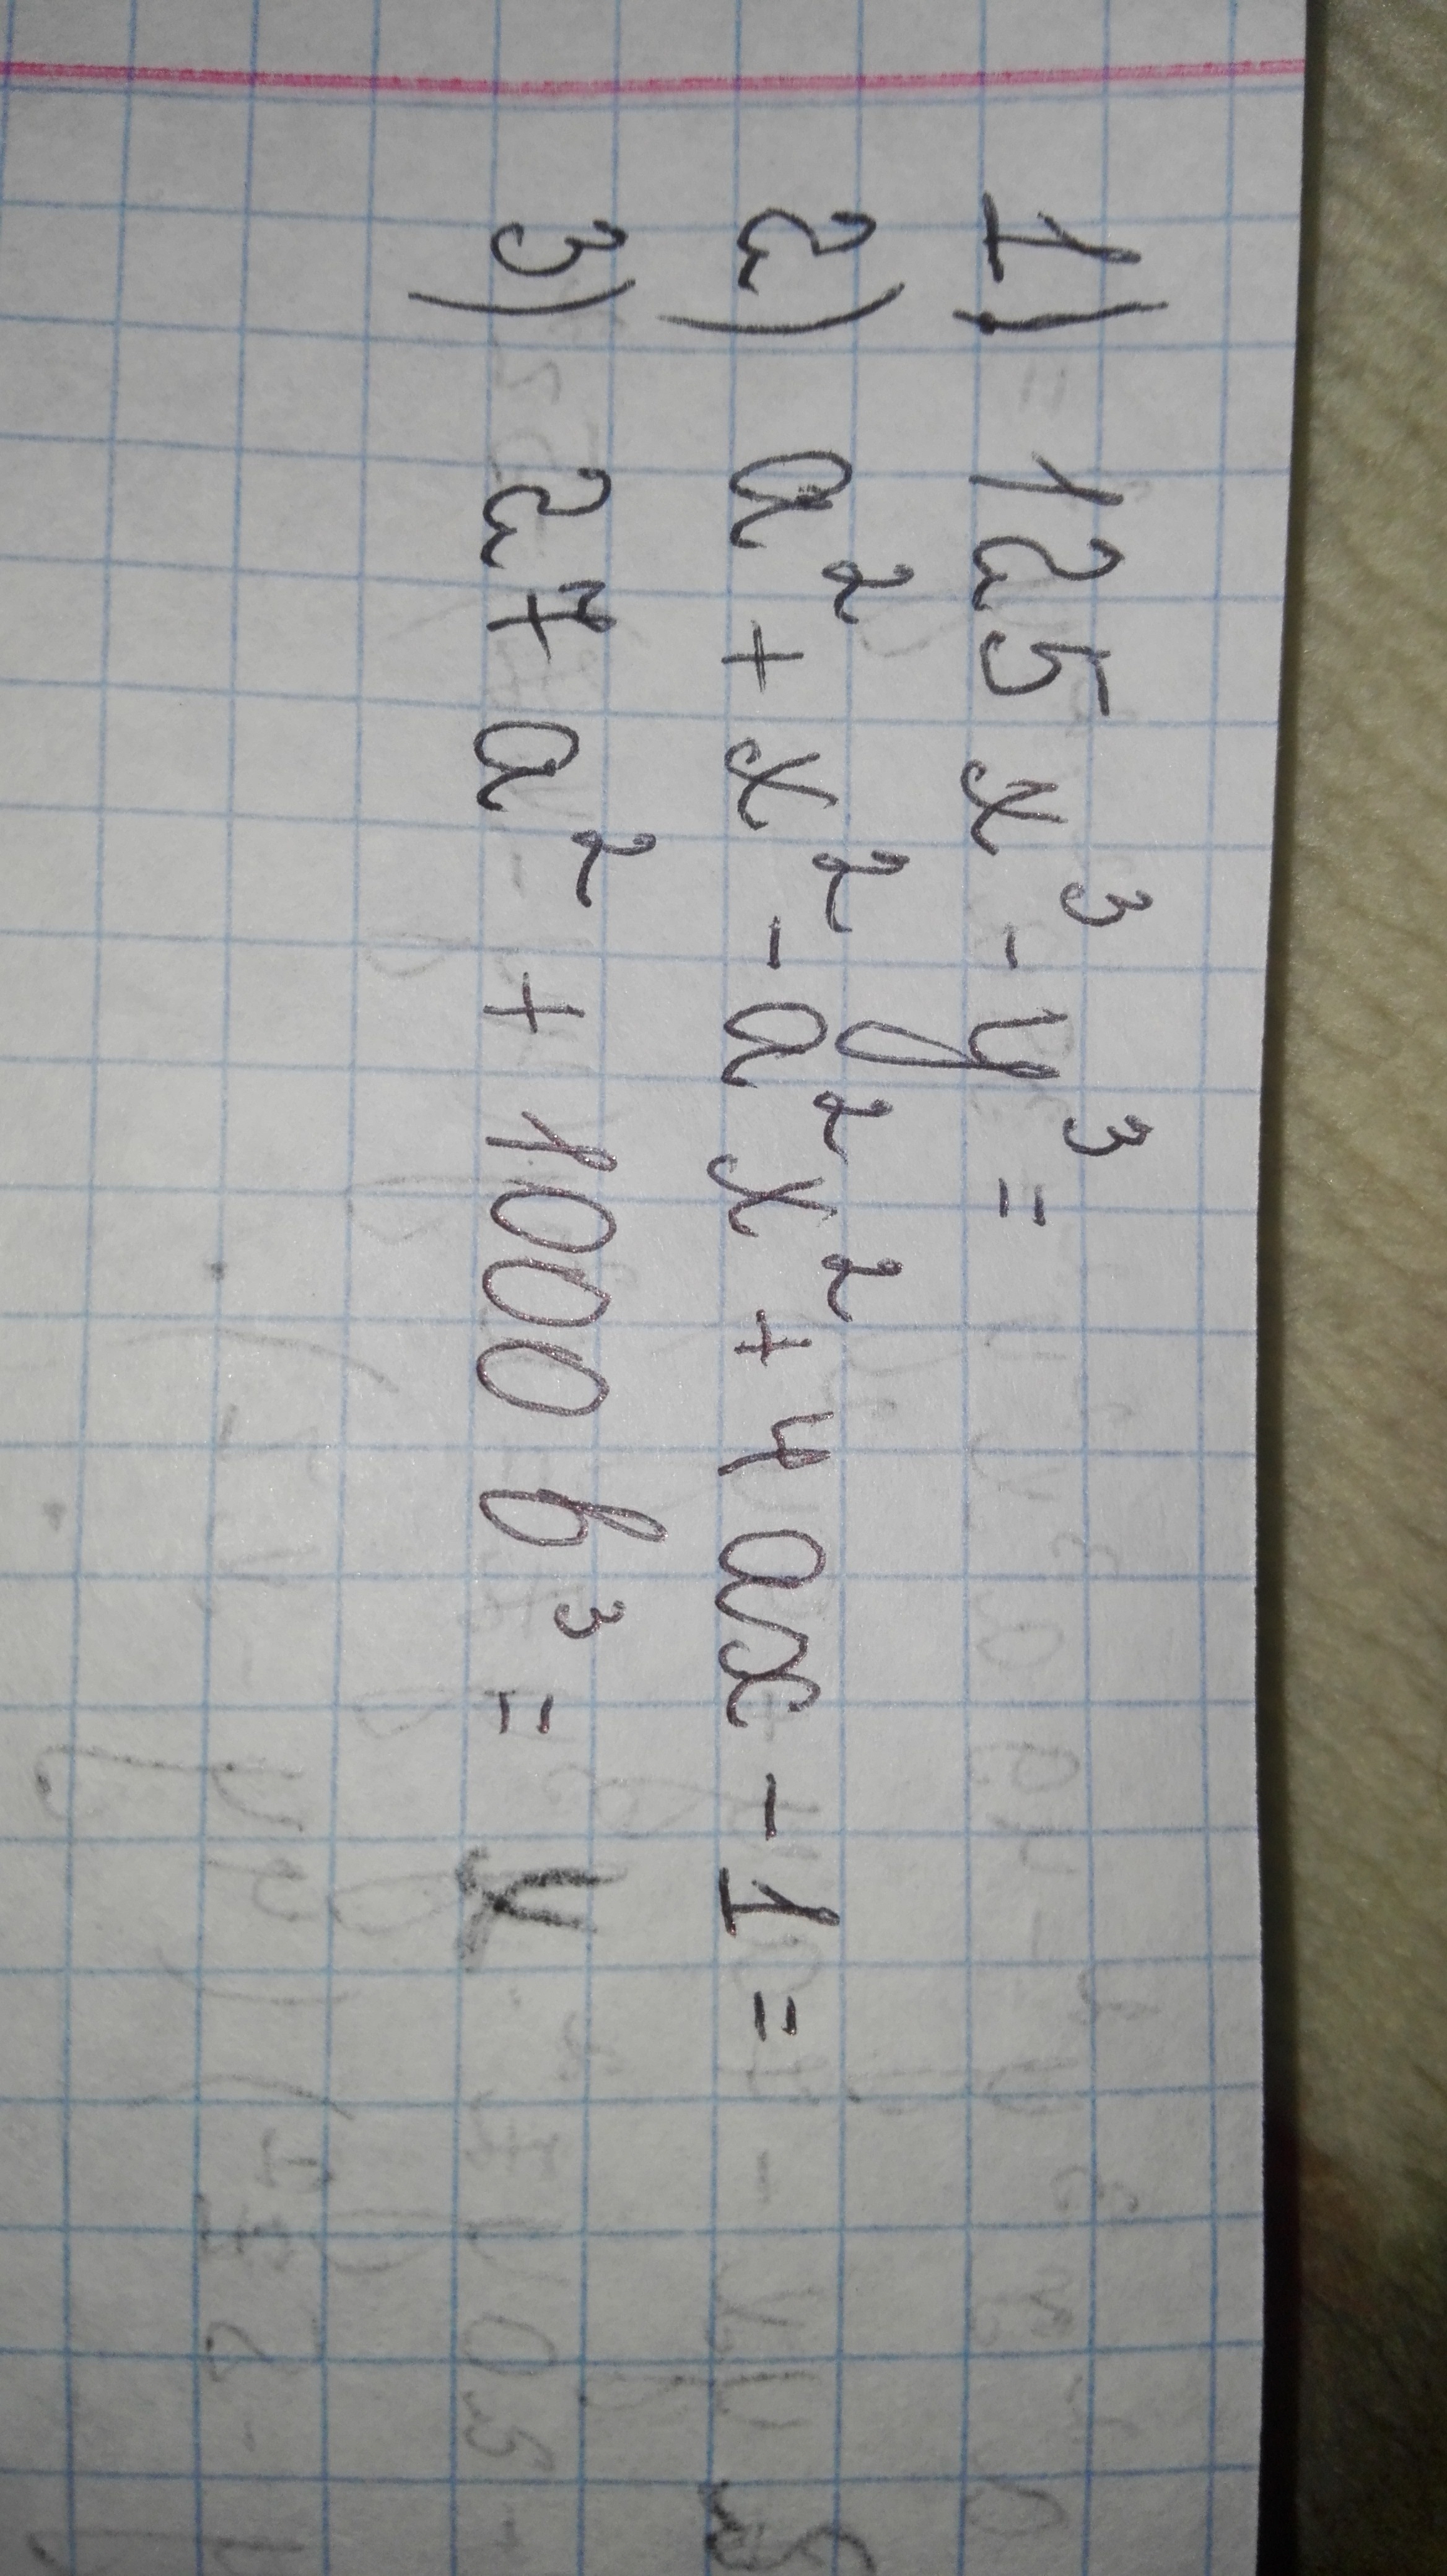 1) 125x³-y³=
2) a²+x²-a²x²+4ax-1=
3) 27a²+1000b³=